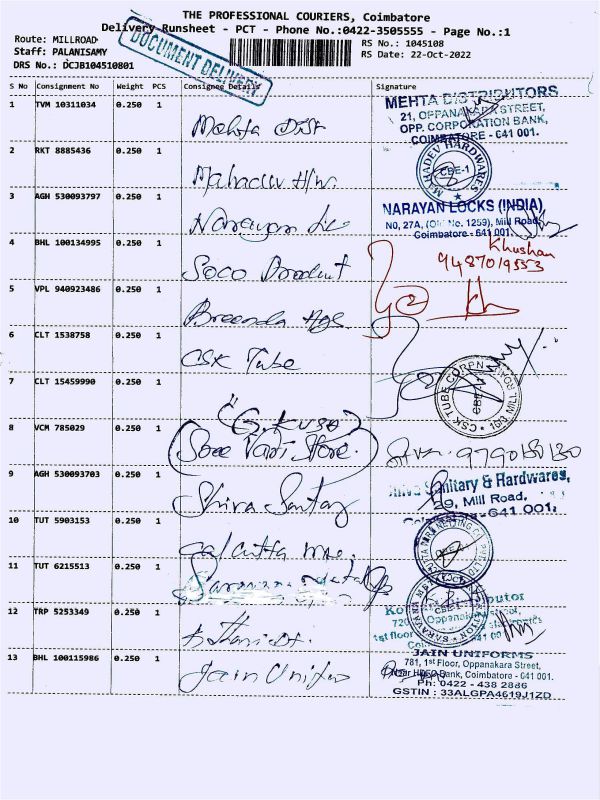 THE PROFESSIONAL COURIERS, Coimbatore
Delivery Runsheet - PCT - Phone No.:0422-3505555 - Page No.:1
Route: MILLROAD
RS No.: 1045108
Staff: PALANISAMY
RS Date: 22-Oct-2022
DRS No.: DCJB104510801
DOCUMENT DELIVERY
S No Consignment No Weight PCS Consignee Details Signature
1 TVM 10311034 0.250 1 Mehta Dist
MEHTA DISTRIBUTORS
21, OPPANAKARA STREET,
OPP. CORPORATION BANK,
COIMBATORE - 641 001.
2 RKT 8885436 0.250 1 Mahadev H/w.
MAHADEV HARDWARES
CBE-1
3 AGH 530093797 0.250 1 Narayan
NARAYAN LOCKS (INDIA)
NO, 27A, (Old No. 1259), Mill Road,
Coimbatore - 641 001.
4 BHL 100134995 0.250 1 Soco Product
Khushan
9487019553
5 VPL 940923486 0.250 1
6 CLT 1538758 0.250 1 CSK Tube
7 CLT 15459990 0.250 1
CSK TUBE CORPN
MILL ROAD
8 VCM 785029 0.250 1 Store.
9790150130
9 AGH 530093703 0.250 1 Shiva Sanitary
Shiva Sanitary & Hardwares,
29, Mill Road.
Coimbatore-641 001,
10 TUT 5903153 0.250 1 Calcutta
11 TUT 6215513 0.250 1
12 TRP 5253349 0.250 1
Oppanakara Street,
1st floor
13 BHL 100115986 0.250 1 Jain Uniform
JAIN UNIFORMS
781, 1st Floor, Oppanakara Street,
Near HDFC Bank, Coimbatore - 641 001
Ph: 0422 - 438 2886
GSTIN : 33ALGPA4619J1ZD